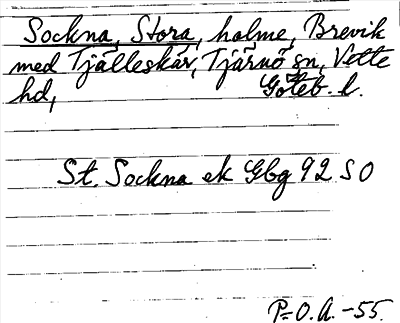 Sockna, Stora, holme, Brevik
med Tjälleskär, Tjärnö sn, Vette
hd, Göteb. l.
St. Sockna ek Gbg 92 SO
P=O.A.-55.